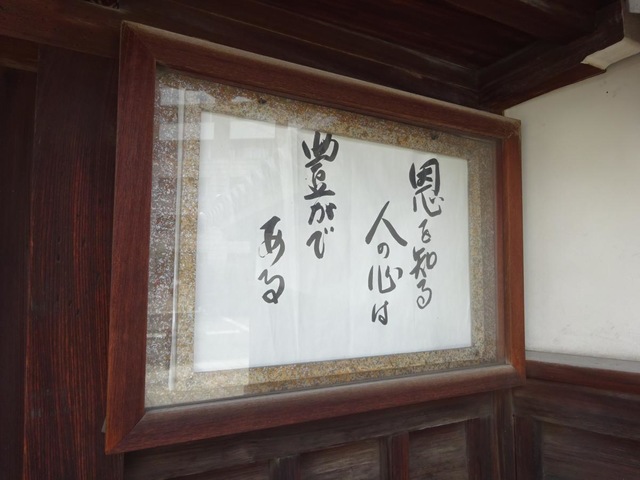 恩を知る
人の心は
豊かで
ある